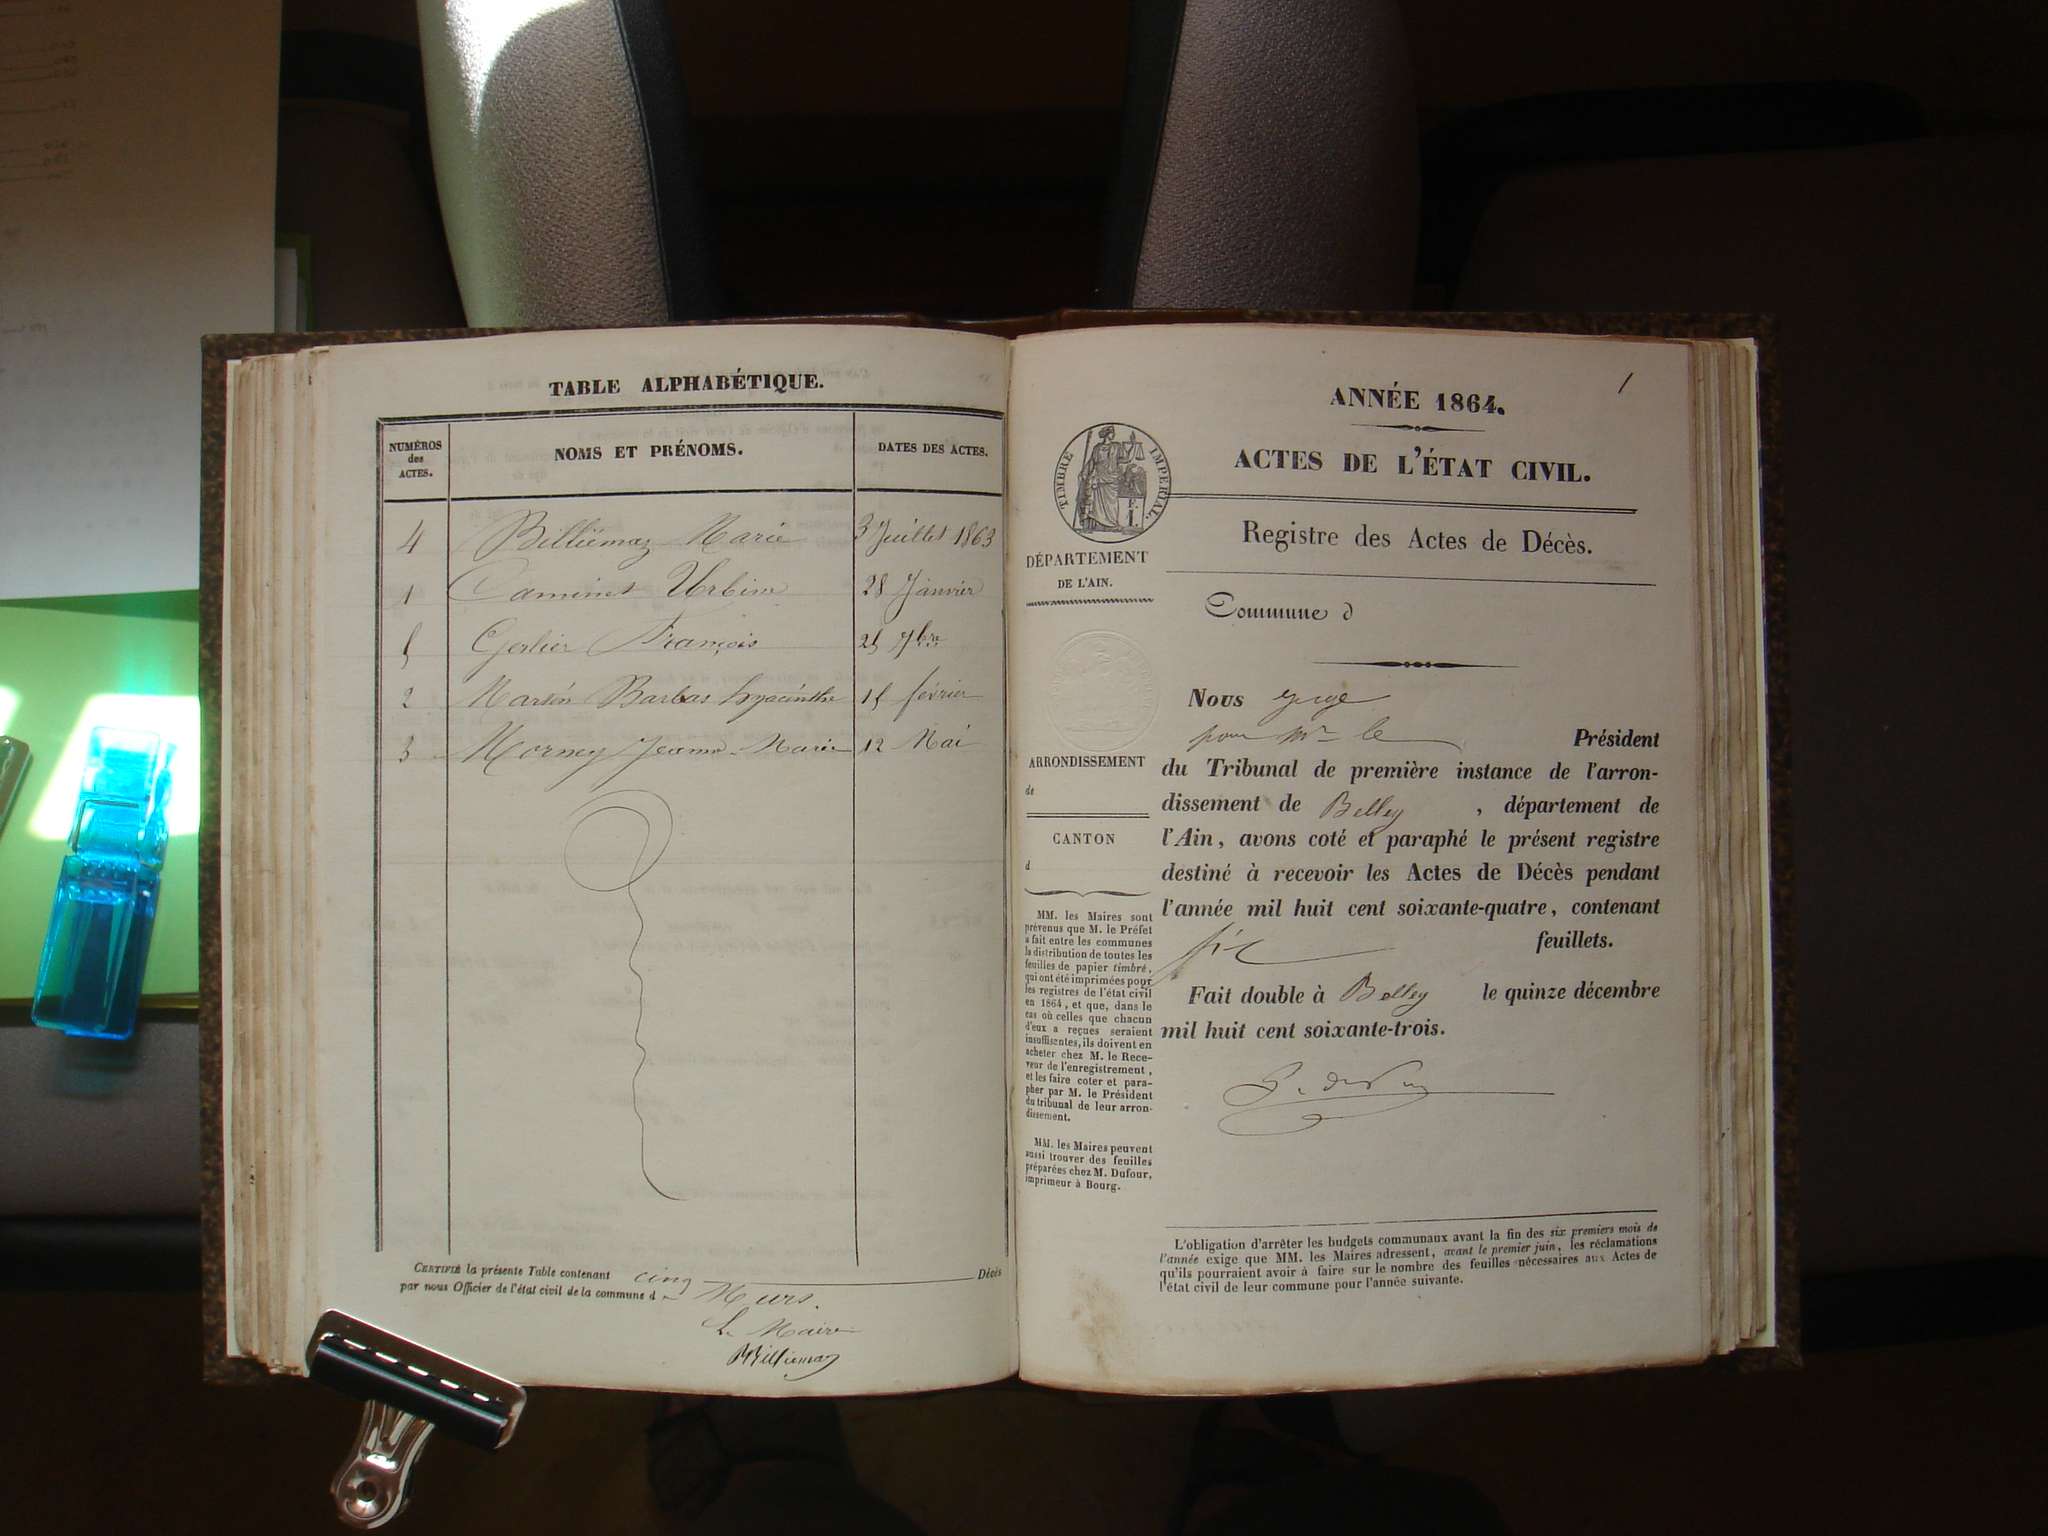 TABLE ALPHABÉTIQUE.
NUMÉROS des ACTES.
NOMS ET PRÉNOMS.
DATES DES ACTES.
4 Billiémaz Marie 3 Juillet 1863
1 Caminet Urbine 28 Janvier
5 Gerlier François 25 7bre
2 Martin Barbas hyacinthe 15 février
3 Mornay Jeanne-Marie 12 Mai
CERTIFIÉ la présente Table contenant cinq Décès
par nous Officier de l'état civil de la commune d Murs.
Le Maire
Billiemaz
1
ANNÉE 1864.
ACTES DE L'ÉTAT CIVIL.
Registre des Actes de Décès.
TIMBRE IMPÉRIAL.
DÉPARTEMENT
DE L'AIN.
ARRONDISSEMENT
de
CANTON
d
MM. les Maires sont
prévenus que M. le Préfet
a fait entre les communes
la distribution de toutes les
feuilles de papier timbré,
qui ont été imprimées pour
les registres de l'état civil
en 1864, et que, dans le
cas où celles que chacun
d'eux a reçues seraient
insuffisantes, ils doivent en
acheter chez M. le Rece-
veur de l'enregistrement,
et les faire coter et para-
pher par M. le Président
du tribunal de leur arron-
dissement.
MM. les Maires peuvent
aussi trouver des feuilles
préparées chez M. Dufour,
imprimeur à Bourg.
Commune d
Nous juge
pour Mr le Président
du Tribunal de première instance de l'arron-
dissement de Belley, département de
l'Ain, avons coté et paraphé le présent registre
destiné à recevoir les Actes de Décès pendant
l'année mil huit cent soixante-quatre, contenant
six feuillets.
Fait double à Belley le quinze décembre
mil huit cent soixante-trois.
L'obligation d'arrêter les budgets communaux avant la fin des six premiers mois de
l'année exige que MM. les Maires adressent, avant le premier juin, les réclamations
qu'ils pourraient avoir à faire sur le nombre des feuilles nécessaires aux Actes de
l'état civil de leur commune pour l'année suivante.